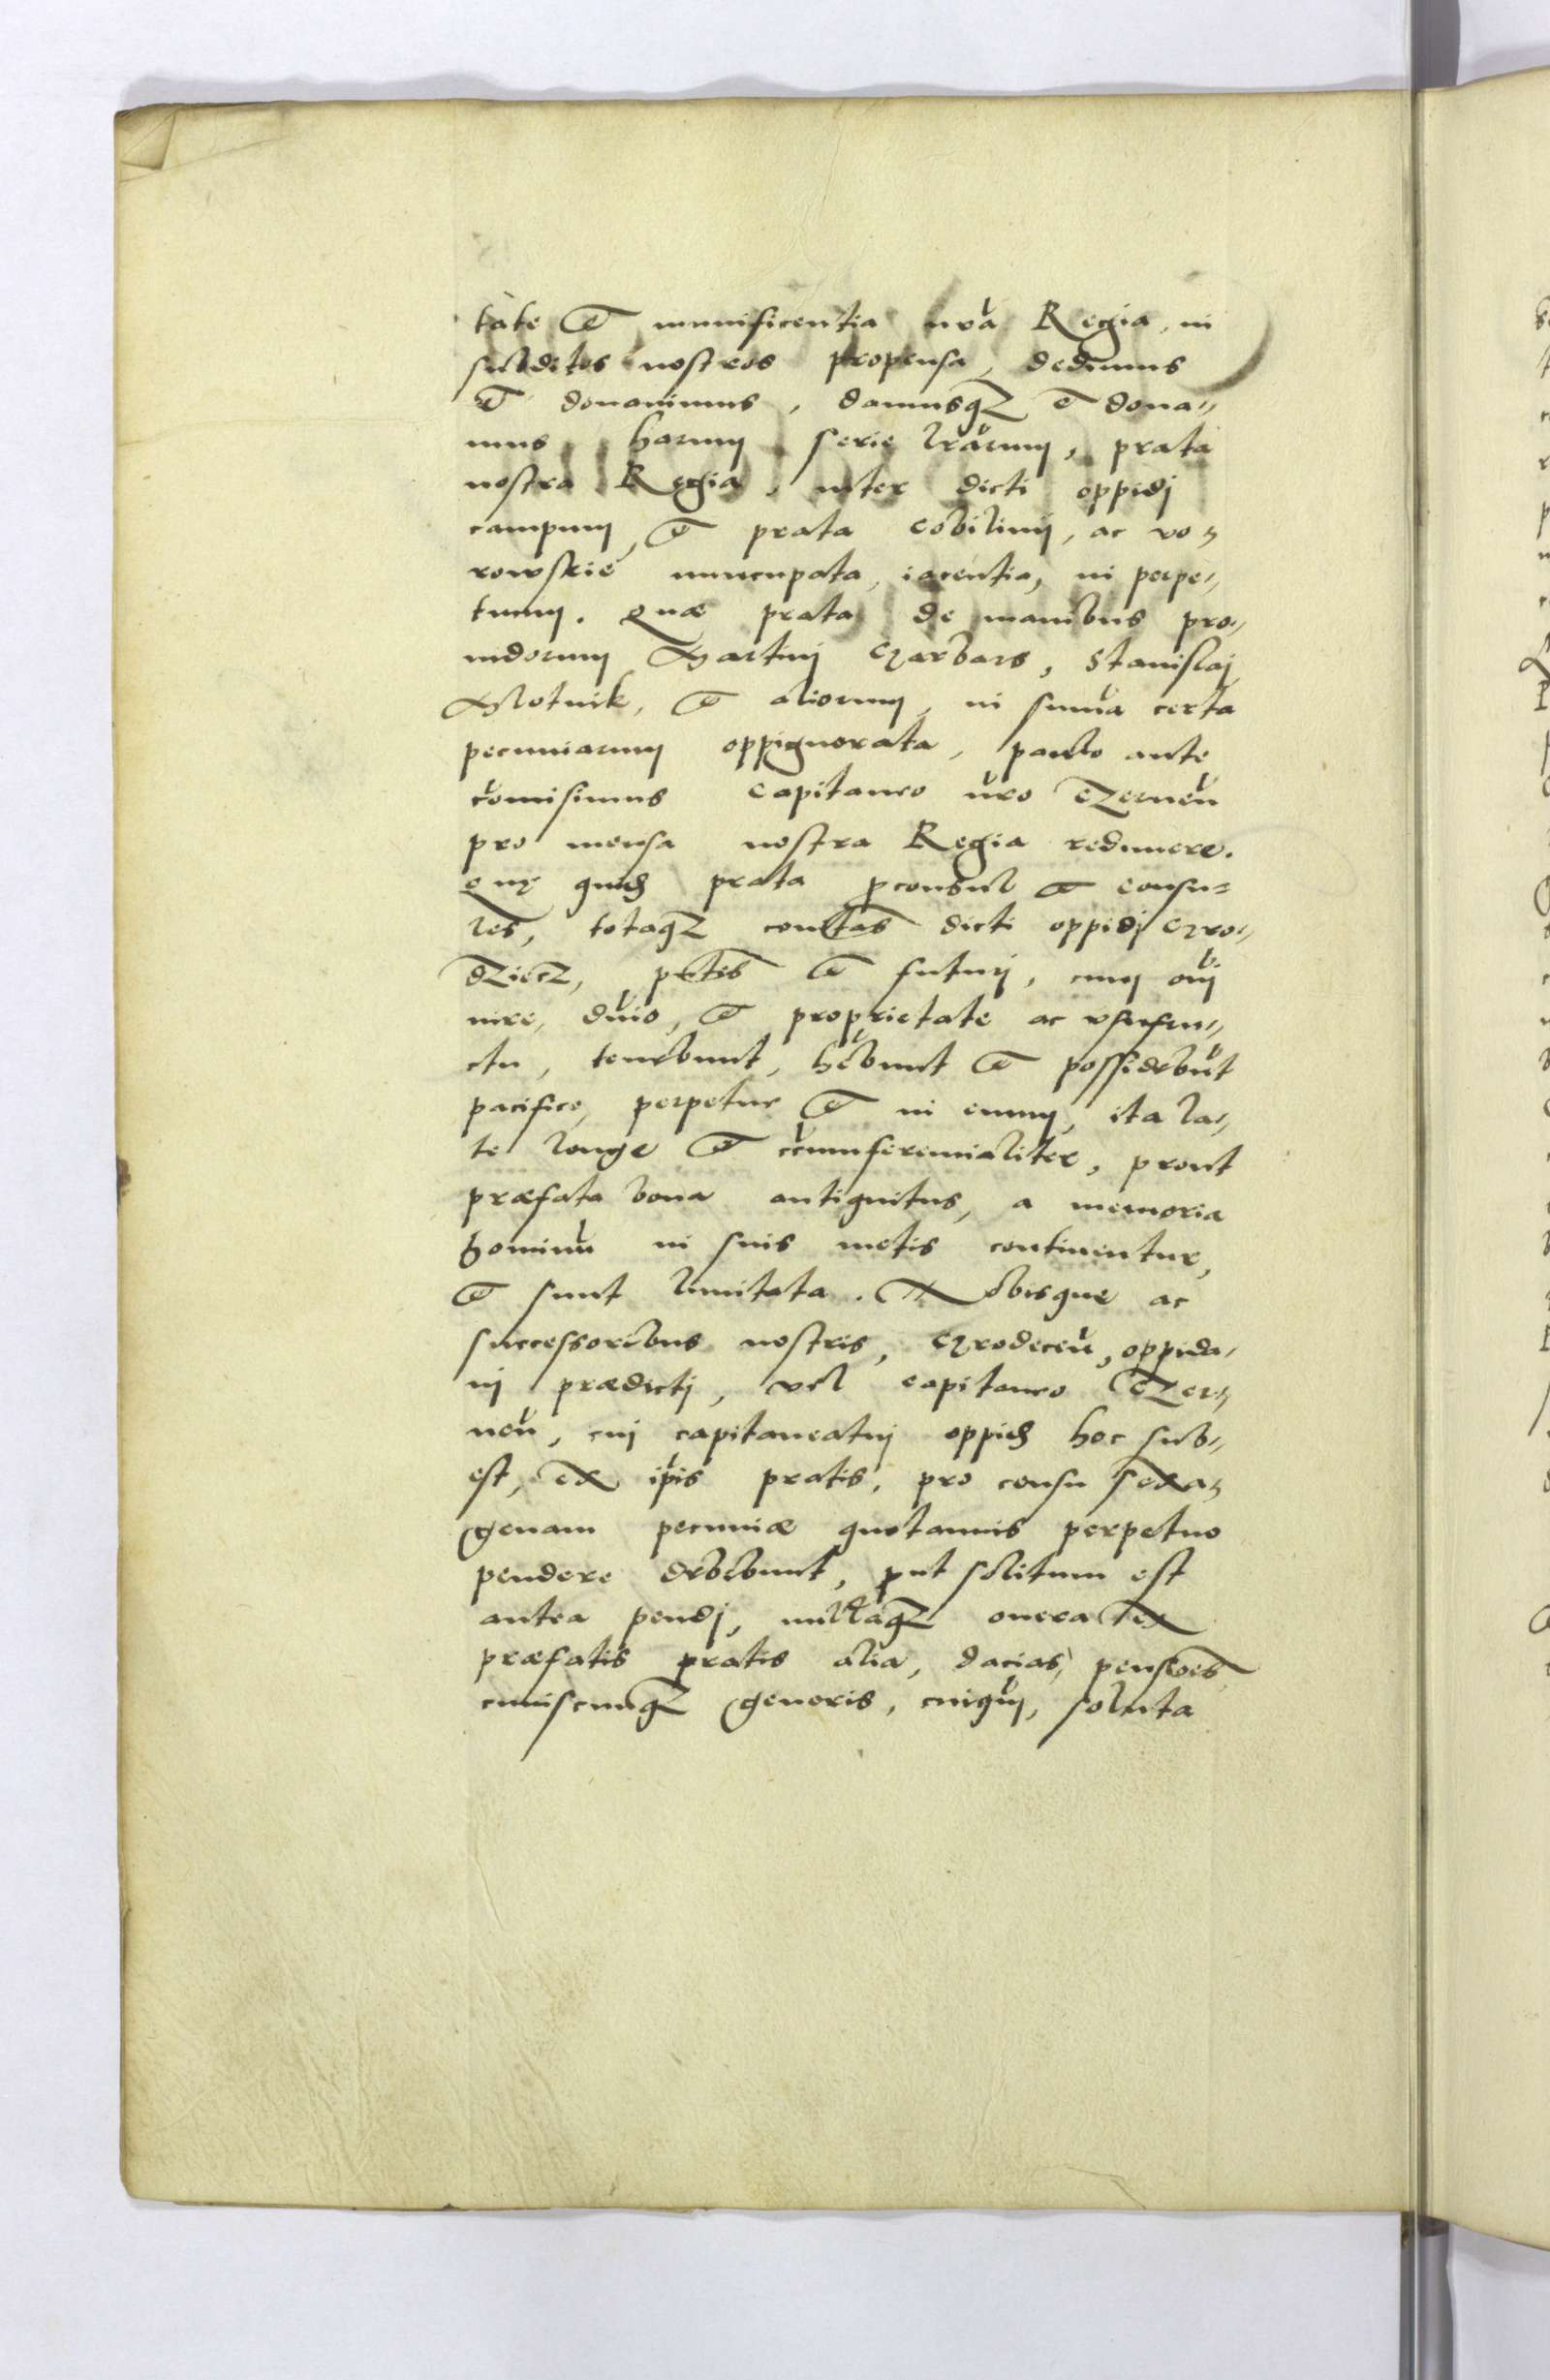 tate et munificentia nra Regia, in
subditos nostros propensa, dedimus
et donauimus, damusqz et dona„
mus harum serie lrarum, prata
nostra Regia, inter dicti oppidj
campum, et prata Cobilinij, ac vo„
rowskie nuncupata, iacentia, in perpe„
tuum. Quæ prata de manibus pro„
uidorum Martinj Czarbars, Stanislaj
Mlotnik, et aliorum, in suma certa
pecuniarum oppignorata, paulo ante
comisimus Capitaneo nro Czerneñ
pro mensa nostra Regia redimere.
Quę quid prata pconsul et consu„
les, totaqz coitas dicti oppidj Czro„
dziecz, pntes et futurj, cum oni
iure, dnio, et proprietate ac vsufru„
ctu, tenebunt, hebunt et possidebut
pacifice, perpetue et in euum, ita la„
te longe et circumferencialiter, prout
præfata bona antiquitus, a memoria
hominu in suis metis continentur,
et sunt limitata. Nobisque ac
successoribus nostris, Czrodeceñ, oppida„
nj prædictj, vel capitaneo Czer„
neñ, cuj capitaneatuj oppid hoc sub„
est, ex ipis pratis, pro censu sexa„
genam pecuniæ quotannis perpetuo
pendere debebunt, put solitum est
antea pendj, nullaqz onera ex
præfatis pratis alia, dacias, pensioes
cuiuscunqz generis, cuiqm, soluta